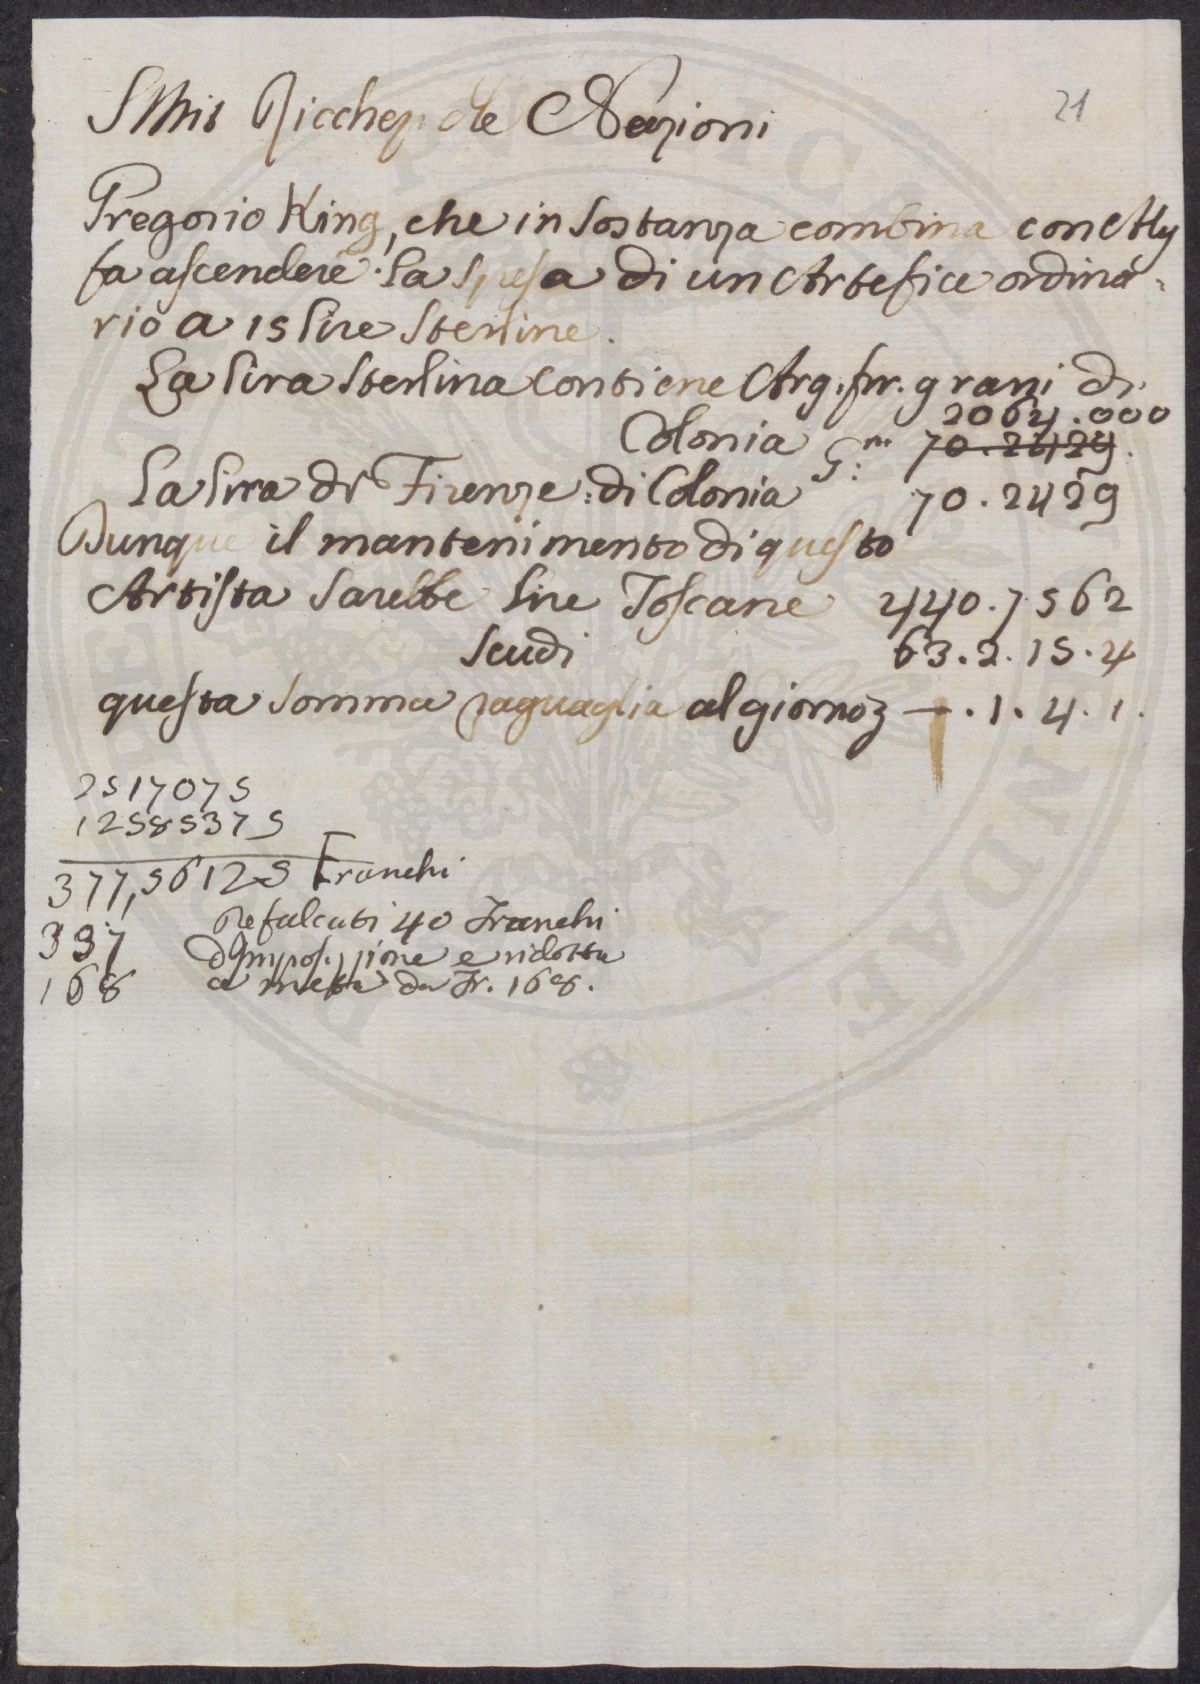 Smis Ricchez. dle Nazioni
21
Gregorio King, che in sostanza combina con
fa ascendere la spesa di un Artefice ordina-
rio a 15 lire sterline.
La lira sterlina contiene Arg. fin. grani di
2064.000
Colonia G.ni 70.2429.
La lira di Firenze: di Colonia 70.2429
Dunque il mantenimento di questo
Artista sarebbe lire Toscane 440.7562
Scudi 63.2.15.4
questa somma raguaglia al giorno —.1.4.1.
2517075
12585375
377,56125 Franchi
337 Refalcati 40 Franchi
d'Imposizione e ridotta
168 a metà da Fr. 168.